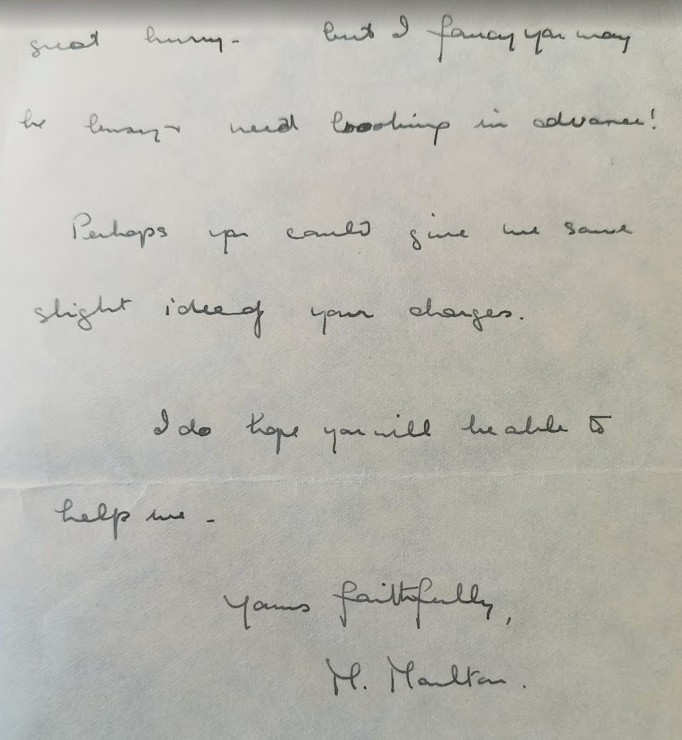 great hurry - but I fancy you may
be busy & need booking in advance!
Perhaps you could give me some
slight idea of your charges.
I do hope you will be able to
help me -
Yours faithfully,
M. Moulton.